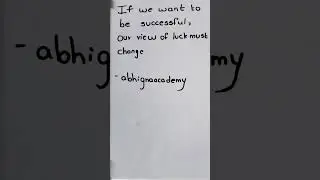 If we want to
be successful,
our view of luck must
change
- abhignaacademy
- abhignaacademy